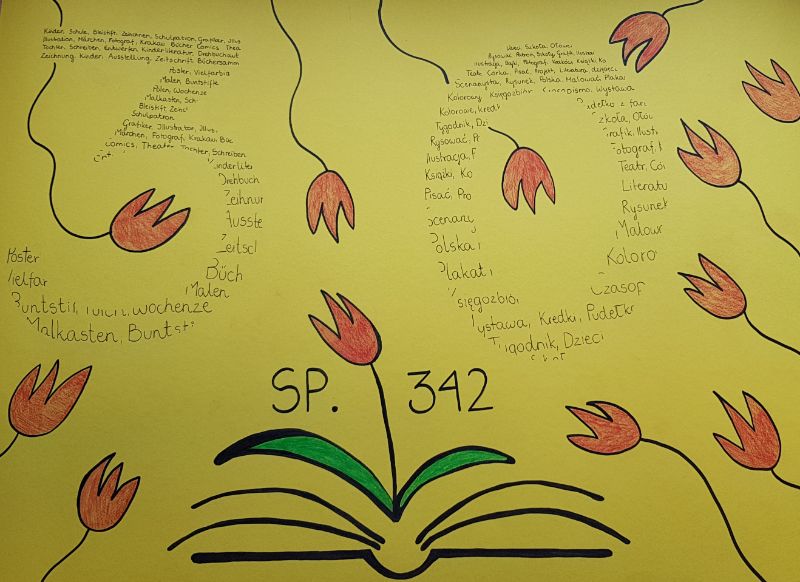 Kinder, Schule, Bleistift, Zeichnen, Schulpatron, Grafiker, Illus
Illustration, Märchen, Fotograf, Krakau Bücher Comics, Thea
Tochter, Schreiben, Entwerfen, Kinderliteratur, Drehbuchaut
Zeichnung, Kinder, Ausstellung, Zeitschrift Büchersamm
Poster, Vielfarbig
Malen, Buntstifte
Polen, Wochenze
Malkasten, Sch
Bleistift Zeic
Schulpatron
Grafiker, Illustrator, Illus.
Märchen, Fotograf, Krakau, Büc
Comics, Theater Tochter, Schreiben
Ent
Kinderlite
Drehbuch
Zeihnun
Ausste
Zeitsc
Büch
Malen
Poster
Vielfar
Buntstif, Wochenze
Malkasten, Buntsti
Szkoła, Ołów
Rysunek, Patron, Szkoły, Grafik, Ilustra
Ilustracja, Bajki, Fotograf, Kraków, Książki, Ko
Teatr, Córka, Pisać, Projekt, Literatura, dziecięca
Scenarzysta, Rysunek, Polska, Malować, Plaka
Kolorowy, Księgozbiór, Czasopismo, Wystawa
Kolorowe, kredk
Tygodnik, Dzi
Rysować, P
Ilustracja, F
Książki, Ko
Pisać, Pro
Scenarz
Polska,
Plakat,
Księgozbió
Wystawa, Kredki, Pudełk
Tygodnik, Dzieci
Pudełko z far
Szkoła, Ołów
Grafik, Ilust
Fotograf, K
Teatr, Có
Literatu
Rysunek
Malow
Koloro
Czasop
SP. 342